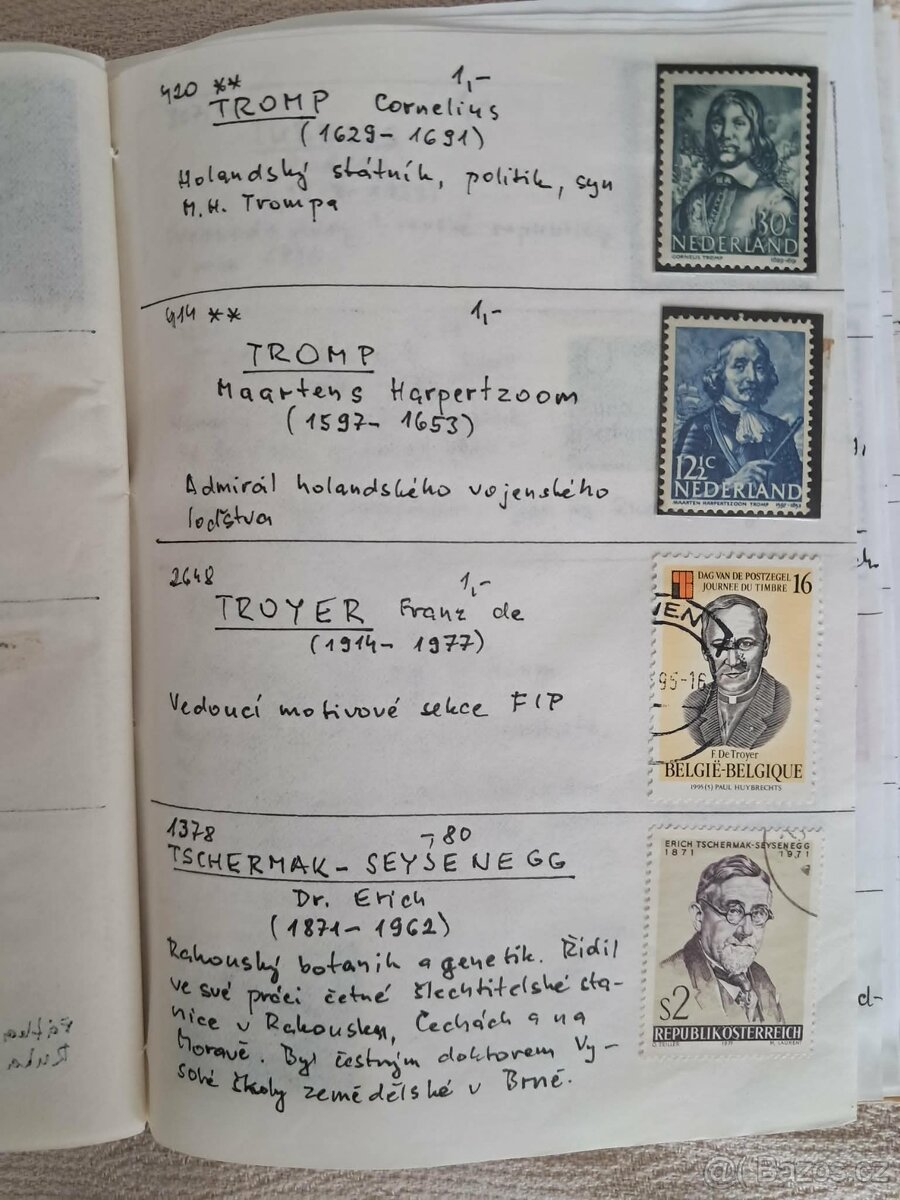 420 **
1,-
TROMP Cornelius
(1629-1691)
Holandský státník, politik, syn
M.H. Trompa
30c
NEDERLAND
CORNELIS TROMP 1629-1691
414 **
1,-
TROMP
Maartens Harpertzoom
(1597-1653)
Admirál holandského vojenského
loďstva
12½c
NEDERLAND
MAARTEN HARPERTSZOON TROMP 1597-1653
2648
1,-
TROYER Franz de
(1914-1977)
Vedoucí motivové sekce FIP
DAG VAN DE POSTZEGEL
JOURNEE DU TIMBRE
16
95-16
F. De Troyer
BELGIË-BELGIQUE
1995 (5) PAUL HUYBRECHTS
1378
-,80
TSCHERMAK-SEYSENEGG
Dr. Erich
(1871-1962)
Rakouský botanik a genetik. Řídil
ve své práci četné šlechtitelské sta-
nice v Rakousku, Čechách a na
Moravě. Byl čestným doktorem Vy-
soké školy zemědělské v Brně.
ERICH TSCHERMAK-SEYSENEGG
1871 1971
S2
REPUBLIK ÖSTERREICH
1971 M. LAURENT
@( Bazos.cz